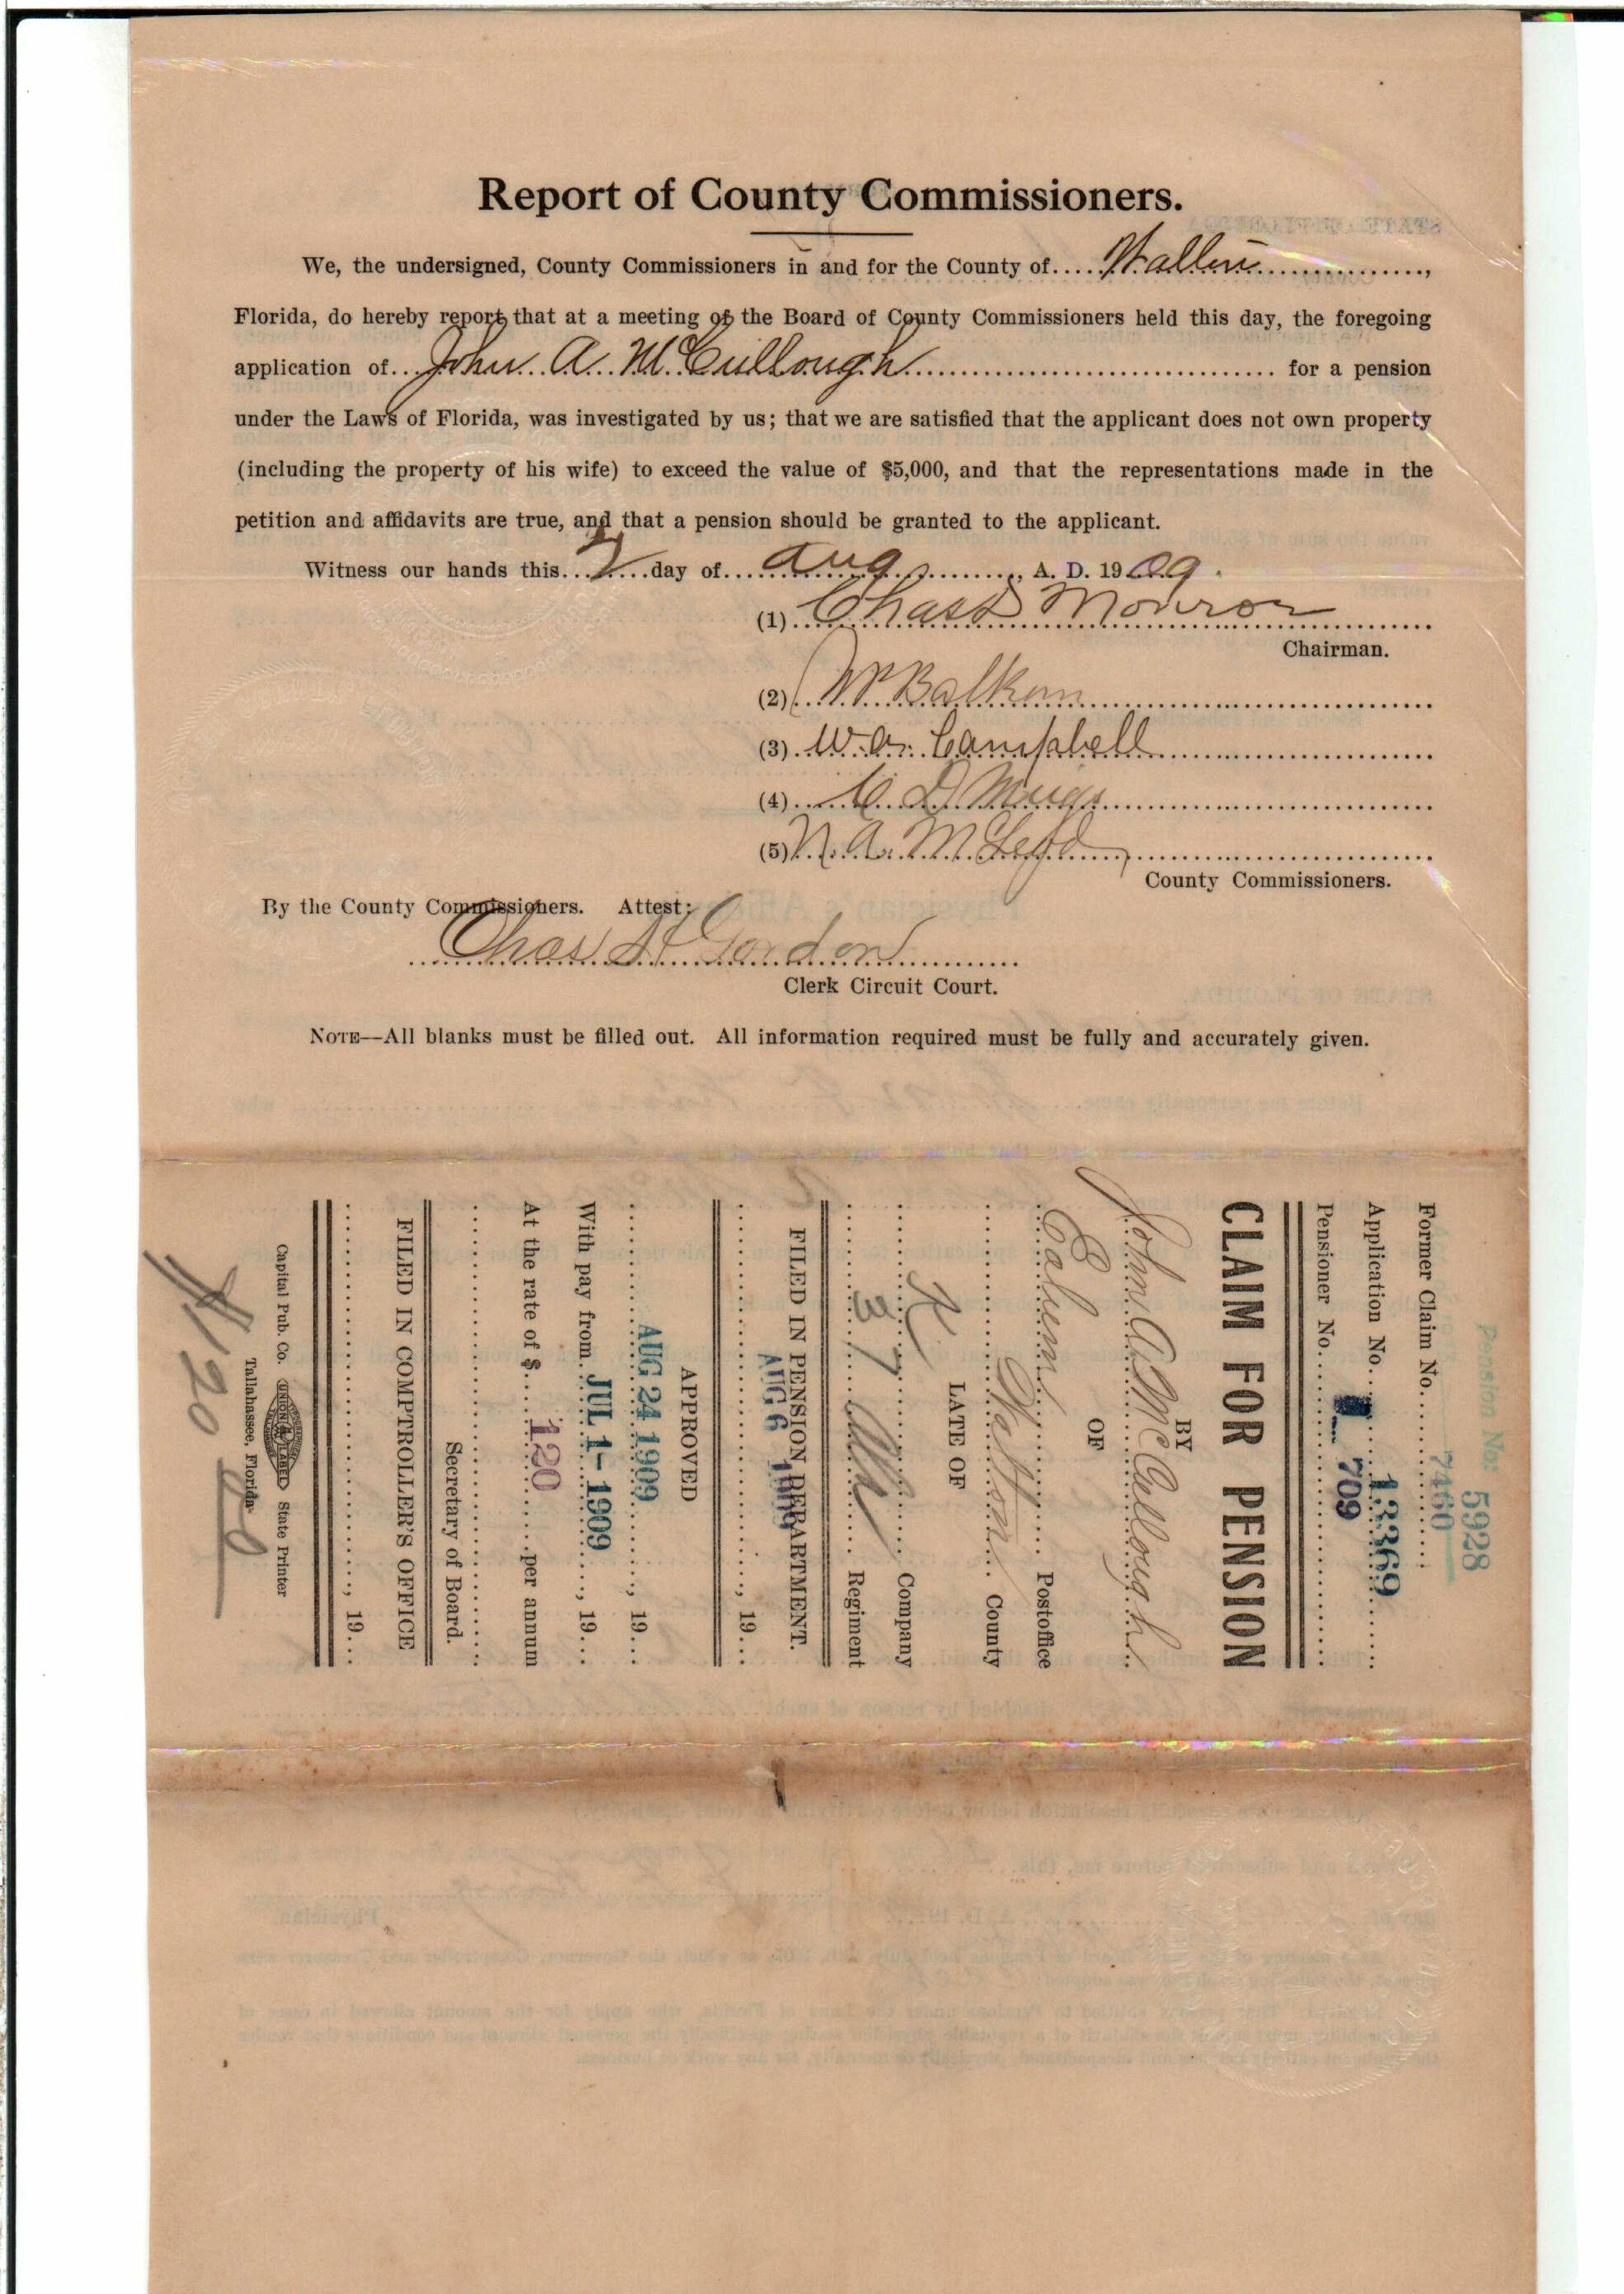 Report of County Commissioners.
We, the undersigned, County Commissioners in and for the County of.....Walton..................,
Florida, do hereby report that at a meeting of the Board of County Commissioners held this day, the foregoing
application of...John A. McCullough.................................... for a pension
under the Laws of Florida, was investigated by us; that we are satisfied that the applicant does not own property
(including the property of his wife) to exceed the value of $5,000, and that the representations made in the
petition and affidavits are true, and that a pension should be granted to the applicant.
Witness our hands this...2....day of....Aug..........., A. D. 1909.
(1) Chas Monroe
Chairman.
(2) Balkom
(3) W. A. Campbell
(4) C D
(5) N. A. McLeod
County Commissioners.
By the County Commissioners. Attest:
Chas H Gordon
Clerk Circuit Court.
NOTE—All blanks must be filled out. All information required must be fully and accurately given.
Pension No: 5928
Former Claim No. 7460
Application No. 13369
Pensioner No. 709
CLAIM FOR PENSION
BY
John A. McCullough
OF
Postoffice
Walton County
LATE OF
K Company
Regiment
FILED IN PENSION DEPARTMENT.
AUG 6 1909, 19...
APPROVED
AUG 24 1909, 19...
With pay from JUL 1- 1909, 19...
At the rate of $ 120 per annum
Secretary of Board.
FILED IN COMPTROLLER'S OFFICE
, 19...
Capital Pub. Co. UNION LABEL State Printer
Tallahassee, Florida
$120 00